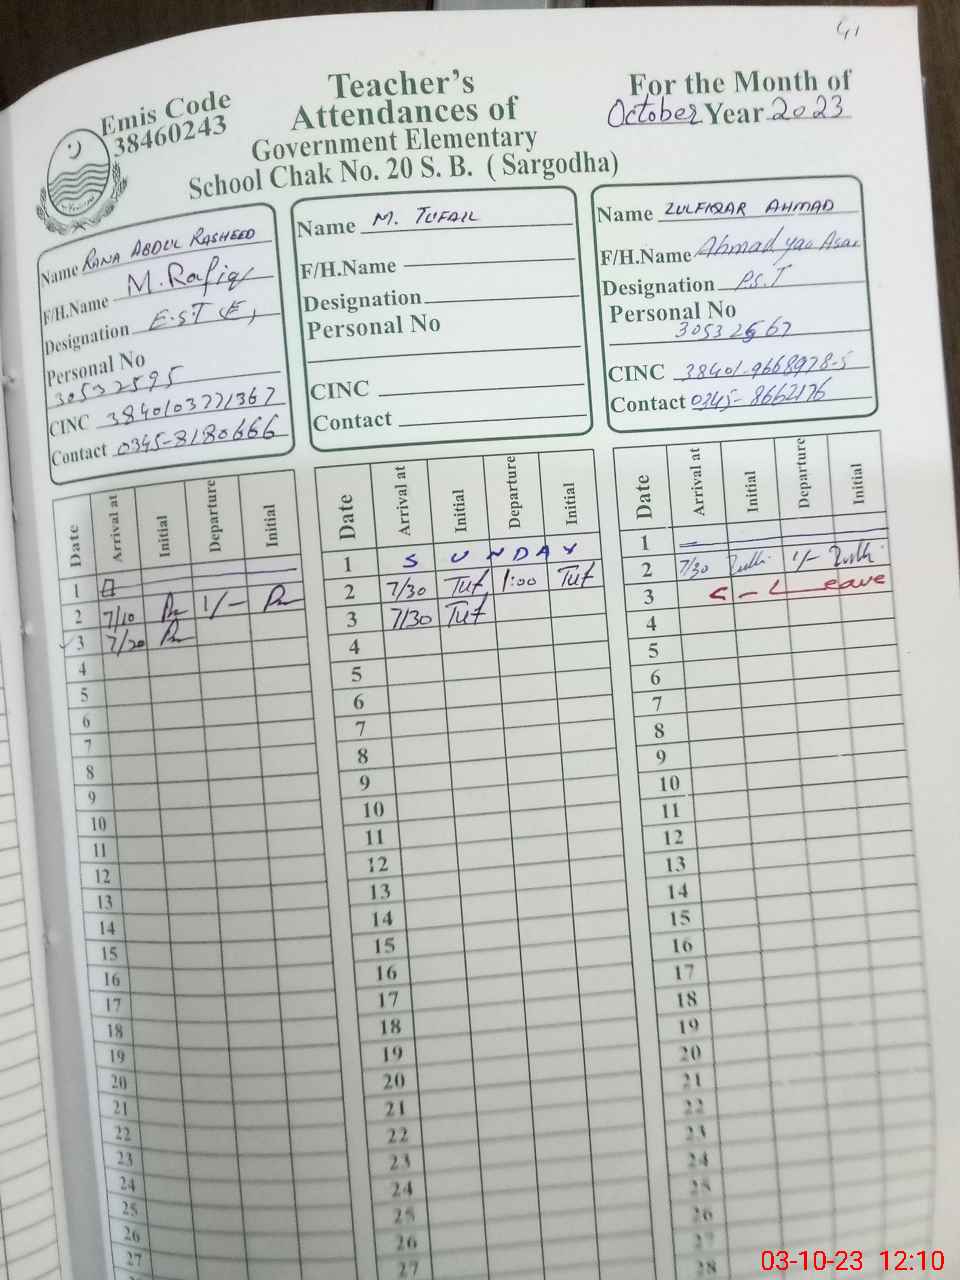 41
Emis Code
38460243
Teacher's
Attendances of
Government Elementary
School Chak No. 20 S. B. ( Sargodha)
For the Month of
October Year 2023
Name RANA ABDUL RASHEED
F/H.Name M. Rafiq
Designation E.S.T E,
Personal No
30532595
CINC 3840103771367
Contact 0345-8180666
Name M. TUFAIL
F/H.Name
Designation
Personal No
CINC
Contact
Name ZULFIQAR AHMAD
F/H.Name Ahmad yao
Designation P.S.T
Personal No
30532567
CINC 38401-9668978-5
Contact 0345-8662176
Date Arrival at Initial Departure Initial
1
2 7/10 1/-
3 7/20
4
5
6
7
8
9
10
11
12
13
14
15
16
17
18
19
20
21
22
23
24
25
26
27
Date Arrival at Initial Departure Initial
1 SUNDAY
2 7/30 Tuf 1:00 Tuf
3 7/30 Tuf
4
5
6
7
8
9
10
11
12
13
14
15
16
17
18
19
20
21
22
23
24
25
26
27
Date Arrival at Initial Departure Initial
1
2 7/30 Zulfi 1/- Zulfi
3 C - Leave
4
5
6
7
8
9
10
11
12
13
14
15
16
17
18
19
20
21
22
23
24
25
26
27
28
03-10-23 12:10